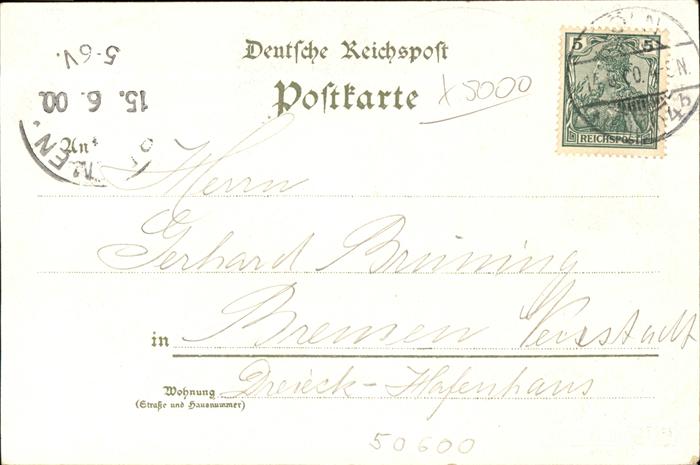 Deutsche Reichspost
Postkarte
x 5000
5 5
REICHSPOST
5-6V.
15. 6. 00
An
Herrn
Gerhard Brüning
in Bremen Neustadt
Wohnung Dreieck-Hafenhaus
(Straße und Hausnummer)
50600